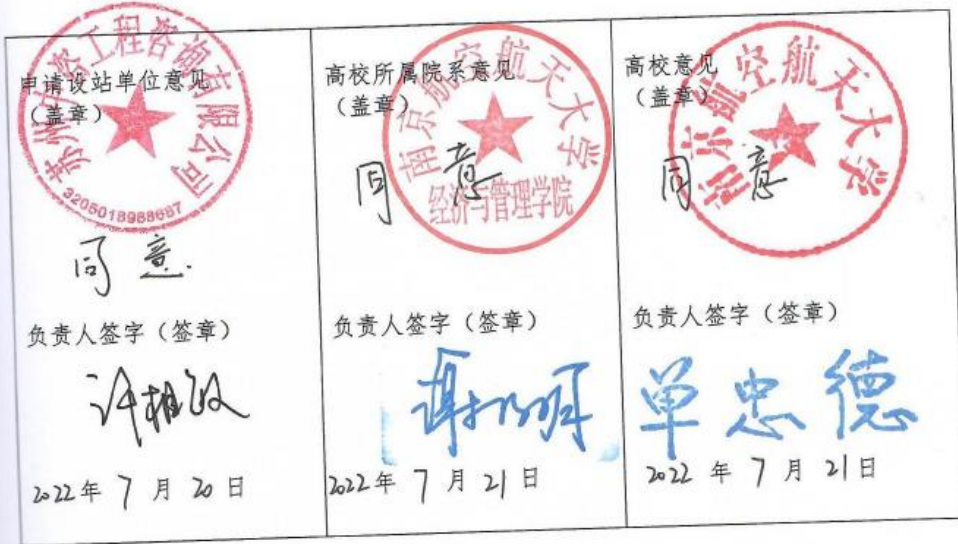 申请设站单位意见
（盖章）
工程咨询有限公司
3205018988687
同意.
负责人签字（签章）
2022年7月20日
高校所属院系意见
（盖章）
南京航空航天大学
经济与管理学院
同意
负责人签字（签章）
2022年7月21日
高校意见
（盖章）
南京航空航天大学
同意
负责人签字（签章）
单忠德
2022年7月21日